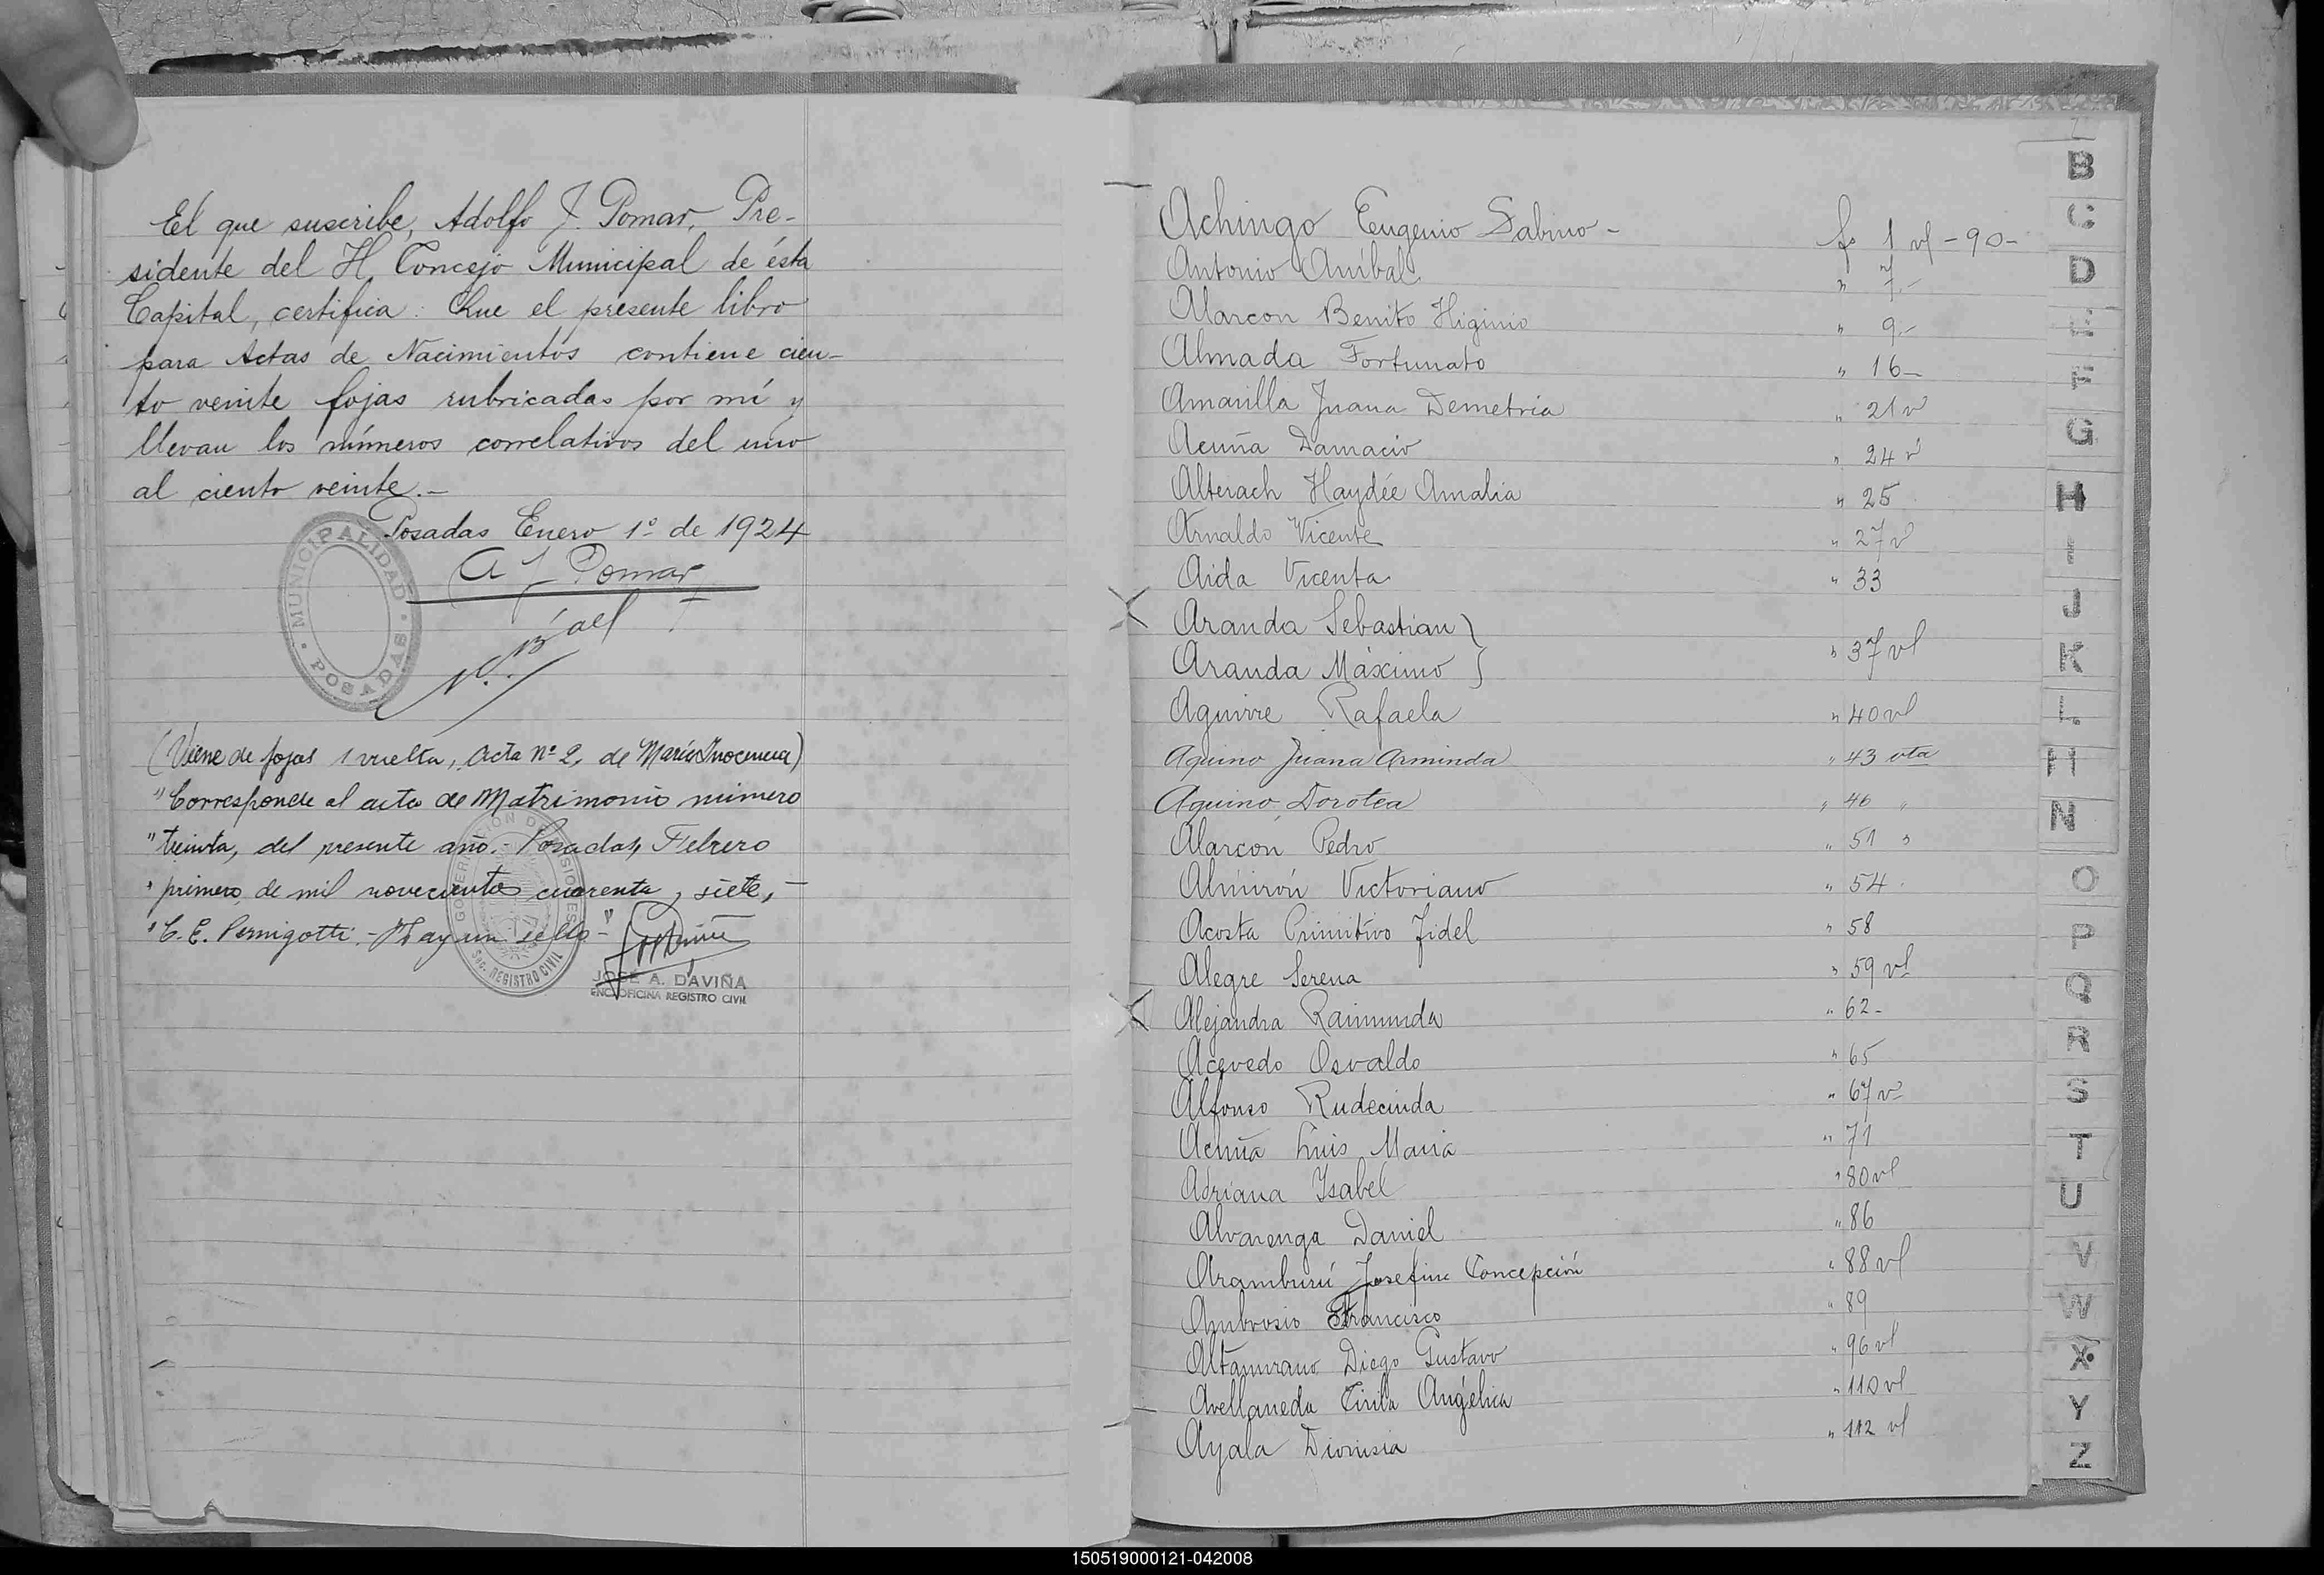 El que suscribe, Adolfo J. Pomar, Pre-
sidente del H. Concejo Municipal de ésta
Capital, certifica: Que el presente libro
para Actas de Nacimientos contiene cien-
to veinte fojas rubricadas por mí y
llevan los números correlativos del uno
al ciento veinte.-
Posadas Enero 1º de 1924
A J Pomar
MUNICIPALIDAD
POSADAS
(Viene de fojas 1 vuelta, acta nº 2, de María Inocencia)
"Corresponde al acta de Matrimonio número
"treinta, del presente año. Posadas, Febrero
"primero de mil novecientos cuarenta y siete,-
"C. E. Pernigotti.- Hay un sello-"
GOBERNACIÓN DE MISIONES
Sec. REGISTRO CIVIL
JOSÉ A. DAVIÑA
ENC. OFICINA REGISTRO CIVIL
Achingo Eugenio Sabino - fs 1 vl - 90-
Antonio Aníbal " 7.-
Alarcon Benito Higinio " 9.-
Almada Fortunato " 16-
Amarilla Juana Demetria " 21 v
Acuña Damacio " 24 v
Alterach Haydée Amalia " 25
Arnaldo Vicente " 27 v
Aida Vicenta " 33
Aranda Sebastian }
Aranda Máximo } " 37 vl
Aguirre Rafaela " 40 vl
Aquino Juana Arminda " 43 vta
Aquino Dorotea " 46 "
Alarcón Pedro " 51 "
Almirón Victoriano " 54
Acosta Primitivo Fidel " 58
Alegre Serena " 59 vl
Alejandra Raimunda " 62-
Acevedo Osvaldo " 65
Alfonso Rudecinda " 67 v
Acuña Luis Maria " 71
Adriana Ysabel " 80 vl
Alvarenga Daniel " 86
Aramburú Josefina Concepción " 88 vl
Ambrosio Francisco " 89
Altamirano Diego Gustavo " 96 vl
Avellaneda Cirila Angélica " 110 vl
Ayala Dionisia " 112 vl
B
C
D
E
F
G
H
I
J
K
L
M
N
O
P
Q
R
S
T
U
V
W
X
Y
Z
150519000121-042008